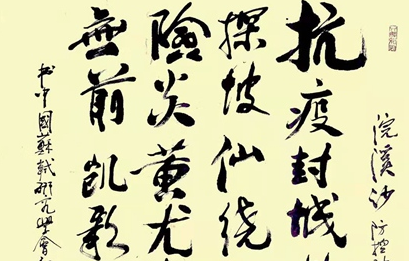 浣溪沙 防控
抗疫封城
探坡仙绕
險炎黄尤
無前凯歌
书中國蘇軾研究學會